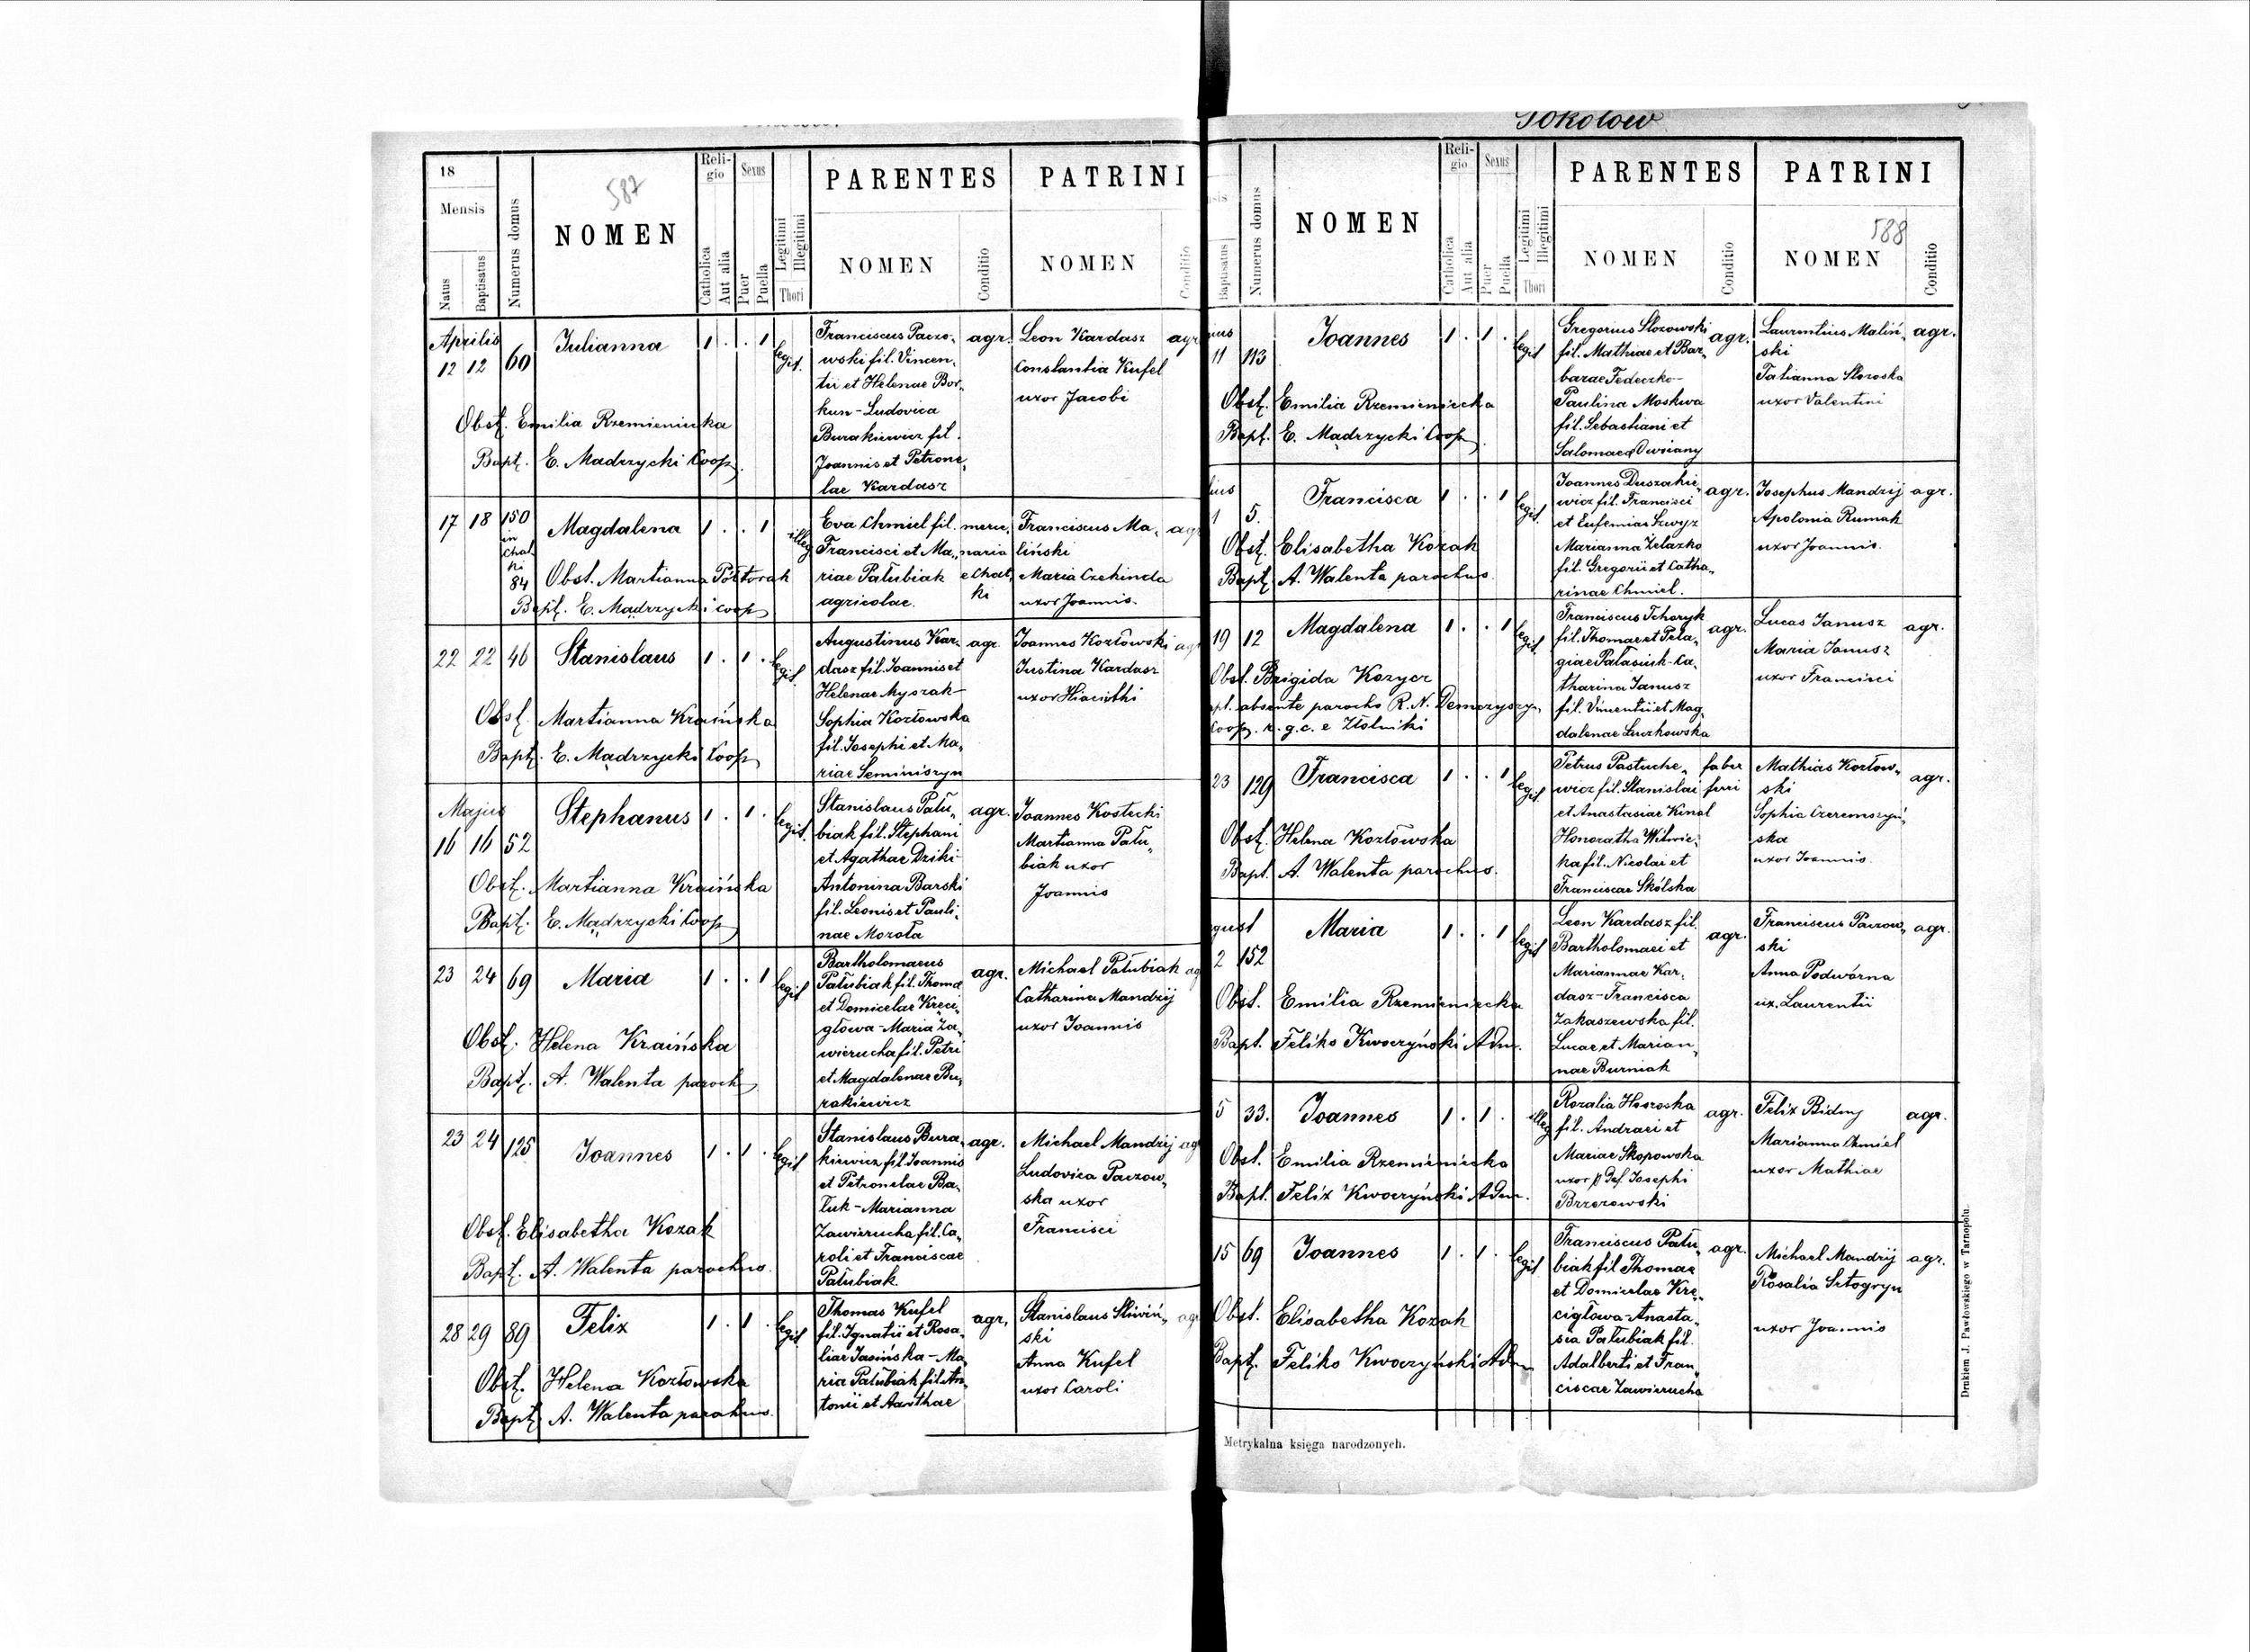 18
Mensis
Natus
Baptisatus
Numerus domus
587
NOMEN
Religio
Catholica
Aut alia
Sexus
Puer
Puella
Legitimi
Illegitimi
Thori
PARENTES
NOMEN
Conditio
PATRINI
NOMEN
Conditio
Aprilis
12 12 60 Julianna 1 . . 1 legit.
Obst. Emilia Rzemieniecka
Bapt. E. Mądrzycki Coop
Franciscus Paczo-
wski fil. Vincen-
tii et Helenae Bor-
kun - Ludovica
Burakiewicz fil.
Joannis et Petrone-
lae Kardasz
agr.
Leon Kardasz
Constantia Kufel
uxor Jacobi
agr
17 18 150
in
Chat
ki
84
Magdalena 1 . . 1 illeg
Obst. Martianna Półtorak
Bapt. E. Mądrzycki coop
Eva Chmiel fil.
Francisci et Ma-
riae Pałubiak
agricolae.
merce
naria
e Chat
ki
Franciscus Ma-
liński
Maria Czekinda
uxor Joannis.
agr
22 22 46 Stanislaus 1 . 1 . legit.
Obst. Martianna Kraińska
Bapt. E. Mądrzycki Coop
Augustinus Kar-
dasz fil. Joannis et
Helenae Myszak -
Sophia Kozłowska
fil. Josephi et Ma-
riae Seminiszyn
agr.
Joannes Kozłowski
Justina Kardasz
uxor Hiacinthi
agr
Majus
16 16 52 Stephanus 1 . 1 . legit.
Obst. Martianna Kraińska
Bapt. E. Mądrzycki Coop
Stanislaus Pału-
biak fil. Stephani
et Agathae Dziki
Antonina Barski
fil. Leonis et Pauli-
nae Mozoła
agr.
Joannes Kostecki
Martianna Pału-
biak uxor
Joannis
23 24 69 Maria 1 . . 1 legit
Obst. Helena Kraińska
Bapt. A. Walenta paroch
Bartholomaeus
Pałubiak fil. Thoma
et Domicelae Kręci-
głowa - Maria Za-
wierucha fil. Petri
et Magdalenae Bu-
rakiewicz
agr.
Michael Pałubiak
Catharina Mandzij
uxor Joannis
ag
23 24 125 Joannes 1 . 1 . legit
Obst. Elisabetha Kozak
Bapt. A. Walenta parochus.
Stanislaus Bura-
kiewicz fil. Joannis
et Petronelae Ba-
łuk - Marianna
Zawierucha fil. Ca-
roli et Franciscae
Pałubiak
agr.
Michael Mandzij
Ludovica Paczow-
ska uxor
Francisci
ag
28 29 89 Felix 1 . 1 . legit
Obst. Helena Kozłowska
Bapt. A. Walenta parochus.
Thomas Kufel
fil. Ignatii et Rosa-
liae Jasińska - Ma-
ria Pałubiak fil. An-
tonii et Agathae
agr.
Stanislaus Śliwiń-
ski
Anna Kufel
uxor Caroli
agr
Sokołow
Baptisatus
Numerus domus
NOMEN
Religio
Catholica
Aut alia
Sexus
Puer
Puella
Legitimi
Illegitimi
Thori
PARENTES
NOMEN
Conditio
PATRINI
588
NOMEN
Conditio
nius
11 113 Joannes 1 . 1 . legit
Obst. Emilia Rzemieniecka
Bapt. E. Mądrzycki Coop
Gregorius Słozowski
fil. Mathiae et Bar-
barae Fedeczko -
Paulina Moskwa
fil. Sebastiani et
Salomeae Owsiany
agr.
Laurentius Maliń-
ski
Tatianna Słozoska
uxor Valentini
agr.
lius
1 5. Francisca 1 . . 1 legit.
Obst. Elisabetha Kozak
Bapt. A. Walenta parochus.
Joannes Duszakie-
wicz fil. Francisci
et Eufemiae Szwyz
Marianna Żelazko
fil. Gregorii et Catha-
rinae Chmiel.
agr.
Josephus Mandzij
Apolonia Rumak
uxor Joannis.
agr.
19 12 Magdalena 1 . . 1 legit
Obst. Brigida Kozycz
pt. absente parocho R. N. Demczyszyn
Coop. r. g. c. e Złotniki
Franciscus Tchoryk
fil. Thomae et Pela-
giae Pałasiuk - Ca-
tharina Janusz
fil. Vincentii et Mag-
dalenae Luczkowska
agr.
Lucas Janusz
Maria Janusz
uxor Francisci
agr.
23 129 Francisca 1 . . 1 legit.
Obst. Helena Kozłowska
Bapt. A. Walenta parochus.
Petrus Pastuche-
wicz fil. Stanislai
et Anastasiae Kinal
Honoratha Witwic-
ka fil. Nicolai et
Franciscae Skólska
faber
ferri
Mathias Kozłow-
ski
Sophia Czeremszyń-
ska
uxor Joannis.
agr.
gust
2 152 Maria 1 . . 1 legit
Obst. Emilia Rzemieniecka
Bapt. Feliks Kwoczyński Adm.
Leon Kardasz fil.
Bartholomaei et
Mariannae Kar-
dasz - Francisca
Zakaszewska fil.
Lucae et Marian-
nae Burniak
agr.
Franciscus Paczow-
ski
Anna Podwórna
ux. Laurentii
agr.
5 33. Joannes 1 . 1 . illeg
Obst. Emilia Rzemieniecka
Bapt. Felix Kwoczyński Adm.
Rozalia Hooroska
fil. Andraei et
Mariae Skopowska
uxor p. def. Josephi
Brzezowski
agr.
Felix Bidny
Marianna Chmiel
uxor Mathiae
agr.
15 69 Joannes 1 . 1 . legit
Obst. Elisabetha Kozak
Bapt. Feliks Kwoczyński Adm
Franciscus Pału-
biak fil Thomae
et Domicelae Krę-
cigłowa - Anasta-
sia Pałubiak fil.
Adalberti et Fran-
ciscae Zawierucha
agr.
Michael Mandzij
Rosalia Sztogryn
uxor Joannis
agr.
Metrykalna księga narodzonych.
Drukiem J. Pawłowskiego w Tarnopolu.